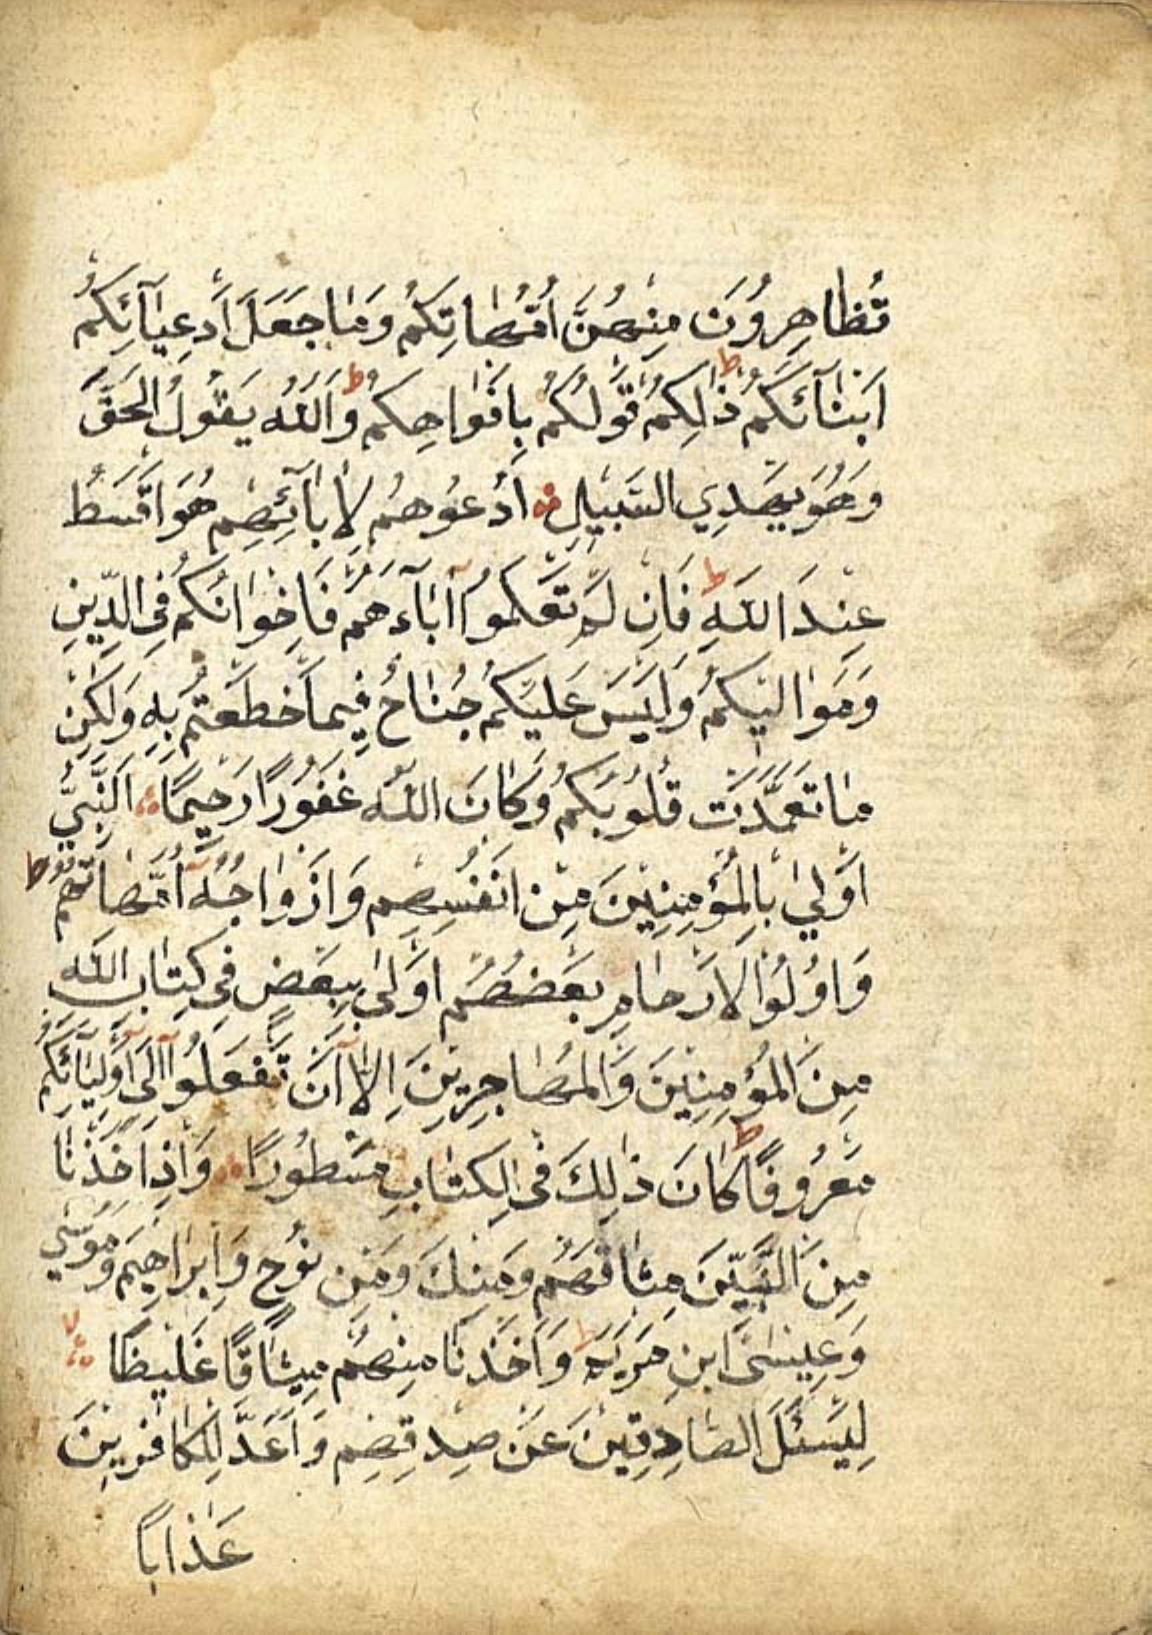 تُظَاهِرُونَ مِنْهُنَّ اُمَّهَاتِكُمْ وَمَا جَعَلَ اَدْعِيَآئَكُمْ
اَبْنَآئَكُمْ ذٰلِكُمْ قَوْلُكُمْ بِاَفْوَاهِكُمْ ط وَاللّٰهُ يَقُولُ الْحَقَّ
وَهُوَ يَهْدِي السَّبِيلَ اُدْعُوهُمْ لِاٰبَآئِهِمْ هُوَ اَقْسَطُ
عِنْدَ اللّٰهِ ط فَاِنْ لَمْ تَعْلَمُوآ اٰبَآءَهُمْ فَاِخْوَانُكُمْ فِى الدِّينِ
وَمَوَالِيكُمْ وَلَيْسَ عَلَيْكُمْ جُنَاحٌ فِيمَآ اَخْطَعْتُمْ بِهِ وَلٰكِنْ
مَا تَعَمَّدَتْ قُلُوبُكُمْ وَكَانَ اللّٰهُ غَفُورًا رَحِيمًا اَلنَّبِيُّ
اَوْلٰي بِالْمُؤْمِنِينَ مِنْ اَنْفُسِهِمْ وَاَزْوَاجُهُ آ اُمَّهَاتُهُمْ ط
وَاُولُوا الْاَرْحَامِ بَعْضُهُمْ اَوْلٰى بِبَعْضٍ فِى كِتَابِ اللّٰهِ
مِنَ الْمُؤْمِنِينَ وَالْمُهَاجِرِينَ اِلَّآ اَنْ تَفْعَلُوآ اِلٰٓى اَوْلِيَآئِكُمْ
مَعْرُوفًا ط كَانَ ذٰلِكَ فِى الْكِتَابِ مَسْطُورًا وَاِذْ اَخَذْنَا
مِنَ النَّبِيّٖنَ مِيثَاقَهُمْ وَمِنْكَ وَمِنْ نُوحٍ وَاِبْرَاهِيمَ وَمُوسٰي
وَعِيسَى ابْنِ مَرْيَمَ ط وَاَخَذْنَا مِنْهُمْ مِيثَاقًا غَلِيظًا لا
لِيَسْئَلَ الصَّادِقِينَ عَنْ صِدْقِهِمْ وَاَعَدَّ لِلْكَافِرِينَ
عَذَابًا